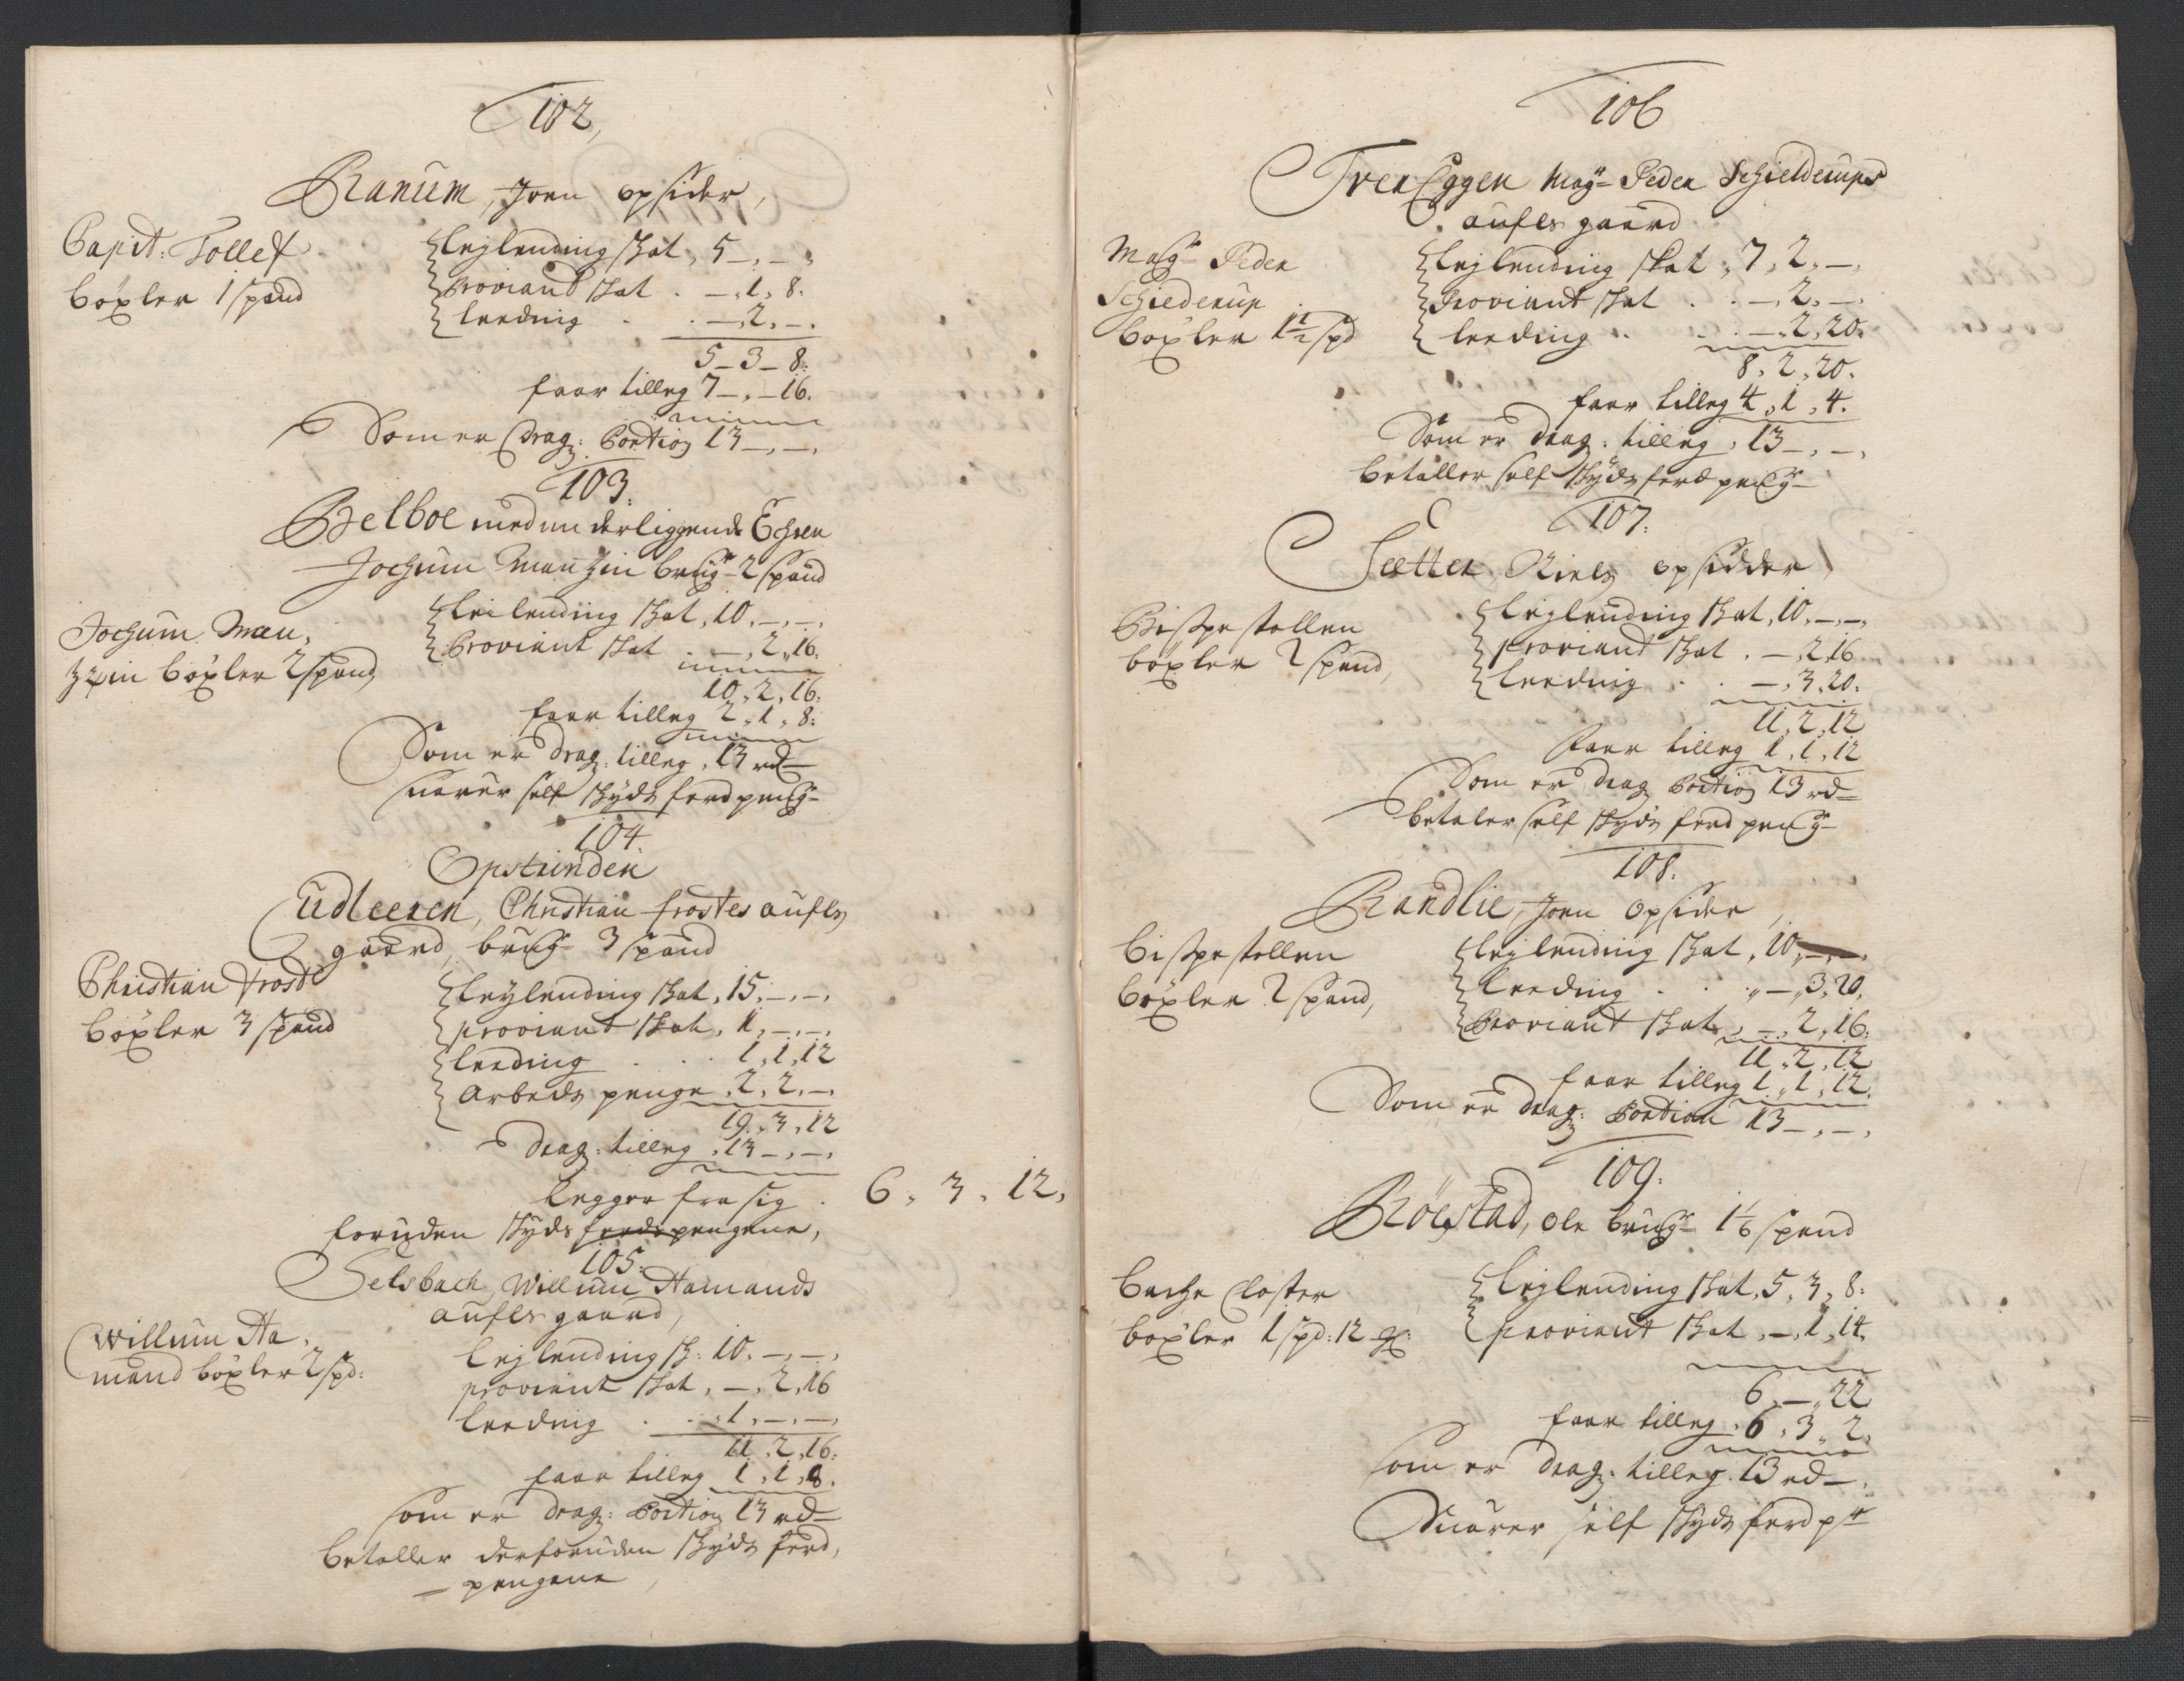 102,
Ranum, Joen opsider,
Capit: Tollef
böxler 1 spand
leylending skat, 5 -, -,
Proviand skat . -, 1, 8.
leeding . . -, 2, -.
5 - 3 - 8:
faar tilleg 7 -, - 16.
Som er Drag: Portion 13 -, -,
103.
Belboe med underliggende Echren
Jochum brug: 2 spand
Jochum
böxler 2 spand,
leilending skat, 10, -, -,
Proviant skat . -, 2, 16.
10, 2, 16:
faar tilleg 2, 1, 8:
Som er Drag: tilleg, 13 rd
suarer self skyds ferd peng
104.
Opstrinden
Udleeren, Christian frostes aufls
gaard, brug 3 spand
Christian Frost
böxler 3 spand
leylending skat, 15, -, -,
proviant skat, 1, -, -,
leeding . . . 1, 1, 12
Arbeds penge, 2, 2, -,
19, 3, 12
Drag: tilleg, 13 -, -,
legger fra sig . 6, 3, 12,
foruden skyds ferds pengene,
105:
Selsbach, Willum Hamands
aufls gaard,
Willum Ha,
mand böxler 2 spd:
leylending sk: 10, -, -,
proviant skat, -, 2, 16
leeding . . 1, -, -,
11, 2, 16:
faar tilleg 1, 1, 8.
som er Drag: Portion 13 rd
betaller derforuden skyds ferd,
- pengene,
106
Tren Eggen Magr Peder Schielderups
aufls gaard
Magr Peder
Schiederup
böxler 1 1/2 spd
leylending skat, 7, 2, -,
Proviant skat . . -, 2, -.
leeding . . -, 2, 20.
8, 2, 20.
faar tilleg 4, 1, 4.
Som er drag: tilleg, 13 -, -,
betaller self skyds ferd peng
107.
Sætter, Niels opsidder,
Bispestollen
böxler 2 spand,
leylending skat, 10, -, -,
proviand skat . -, 2, 16
leeding . . -, 3, 20.
11, 2, 12
faar tilleg 1, 1, 12
Som er drag Portion 13 rd
betaler self skyds ferd peng
108.
Randlie, Joen Opsider,
Bispestollen
böxler 2 spand,
leylending skat, 10, -, -.
leeding . . -, 3, 20.
Proviant skat, -, 2, 16:
11, 2, 12
faar tilleg 1, 1, 12.
Som er drag: Portion 13 -, -,
109.
Röestad, Ole brug 1 1/6 spand
Bache Closter
böxler 1 spd: 12
leylending skat, 5, 3, 8:
proviant skat, -, 1, 14.
6, -, 22
faar tilleg, 6, 3, 2,
som er drag: tilleg. 13 rd
Suarer self skyds ferd p